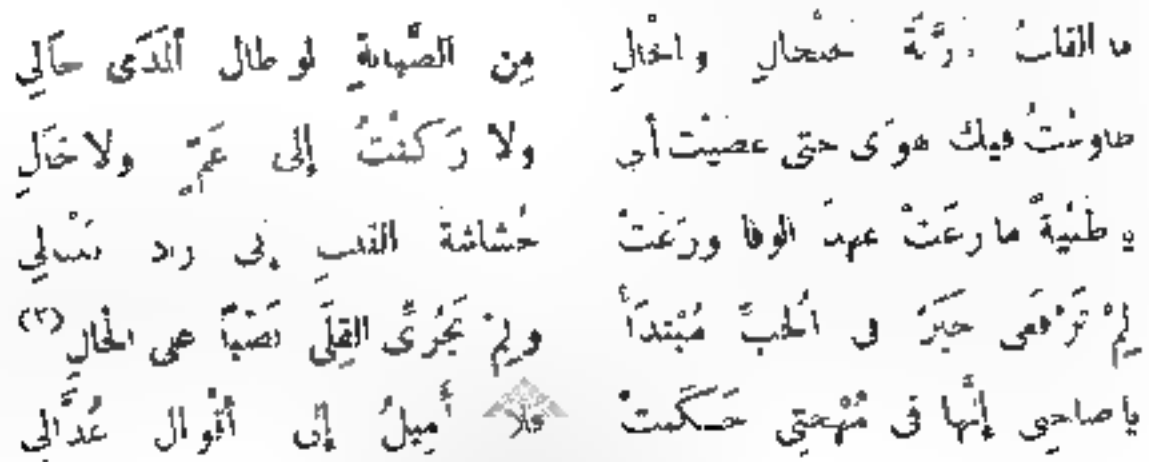 ما القلبُ رَبَّةَ خلخالٍ والخالِ مِن الصَّبابةِ لو طال اَلْمَدَى خَالِي
طاوعتُ فيك هوًى حتى عصيْت أبي ولا رَكَنْتُ إلى عَمٍّ ولا خَالِ
يا ظبْيةً ما رعَتْ عهدَ الوفا ورَعَتْ حُشاشةَ القلبِ زاد بَلْبالِي
لِمْ تَرْفعي خَبَرَ في اَلحبِّ مُبْتدَأً ولِمْ تَجُرِّى القِلَى نَصْبًا على الحَالِ (٢)
يا صاحبي إنَّها في مُهْجَتِي حَكَمتْ فلا أَمِيلُ إلى أقْوالِ عُذَّالِي